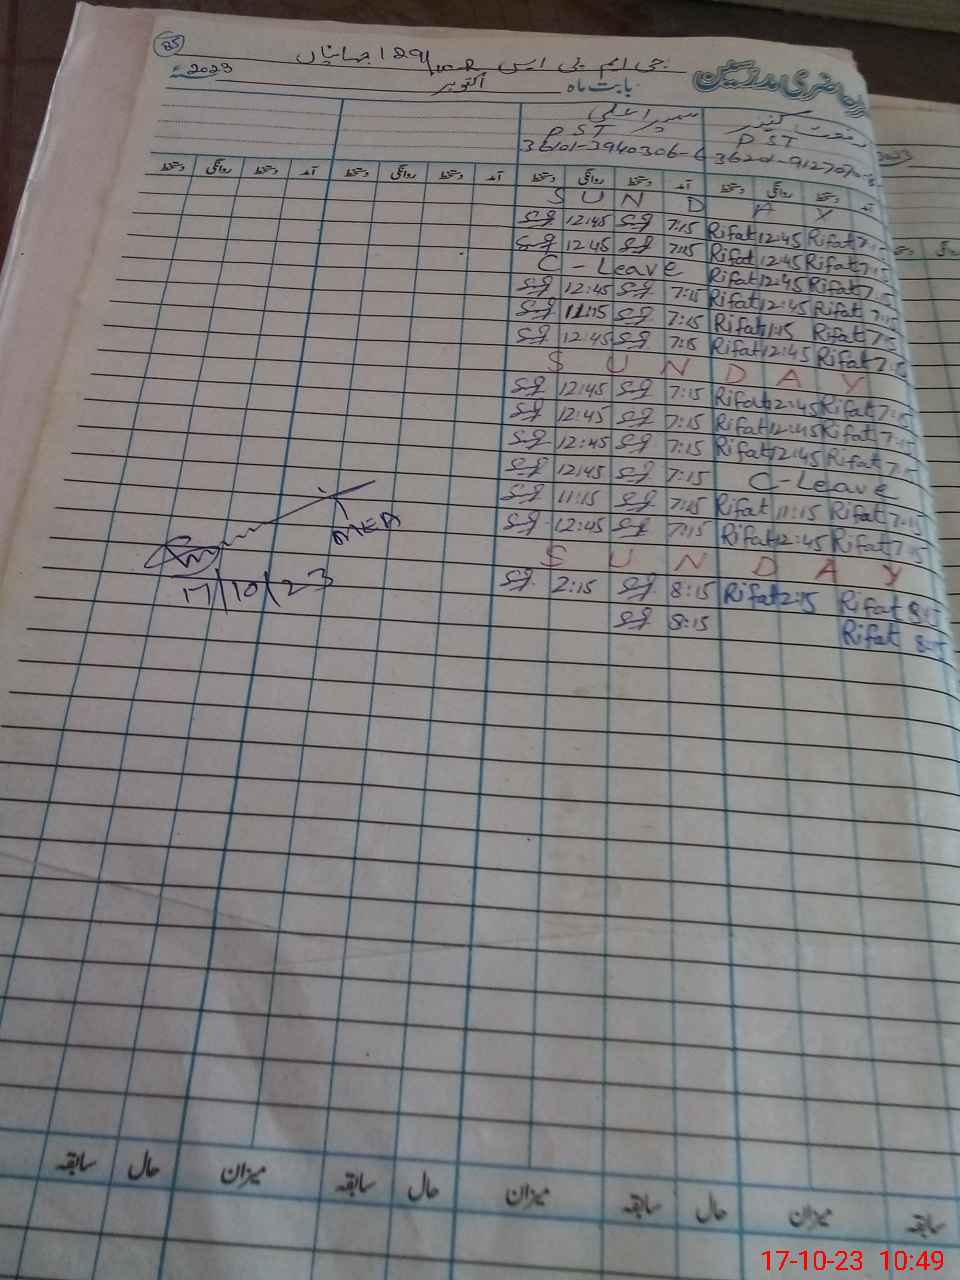 85
حاضری مدرسین جی ایم پی ایس 129/10R جہانیاں
بابت ماہ اکتوبر 2023ء
رفعت کنیز سمیرا علی
PST PST
3610-3940306-6
آمد دستخط روانگی دستخط آمد دستخط روانگی دستخط آمد دستخط روانگی دستخط آمد دستخط روانگی دستخط
S U N D A Y
12:45 7:15 Rifat 12:45 Rifat 7:15
12:45 7:15 Rifat 12:45 Rifat 7:15
C-Leave Rifat 12:45 Rifat 7:15
12:45 7:15 Rifat 12:45 Rifat 7:15
11:15 7:15 Rifat 11:15 Rifat 7:15
12:45 7:15 Rifat 12:45 Rifat 7:15
S U N D A Y
12:45 7:15 Rifat 12:45 Rifat 7:15
12:45 7:15 Rifat 12:45 Rifat 7:15
12:45 7:15 Rifat 12:45 Rifat 7:15
12:45 7:15 C-Leave
11:15 7:15 Rifat 11:15 Rifat 7:15
12:45 7:15 Rifat 12:45 Rifat 7:15
S U N D A Y
2:15 8:15 Rifat 2:15 Rifat 8:15
8:15 Rifat 8:15
MEA
17/10/23
سابقہ میزان حال سابقہ میزان حال سابقہ میزان حال سابقہ
17-10-23 10:49